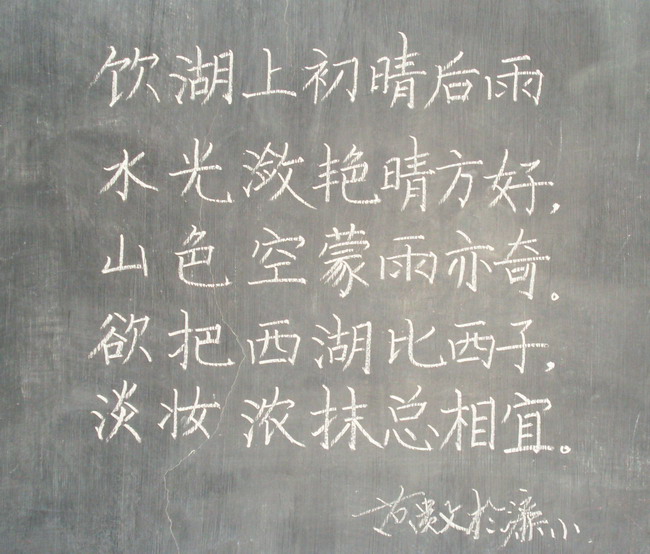 饮湖上初晴后雨
水光潋艳晴方好，
山色空蒙雨亦奇。
欲把西湖比西子，
淡妆浓抹总相宜。